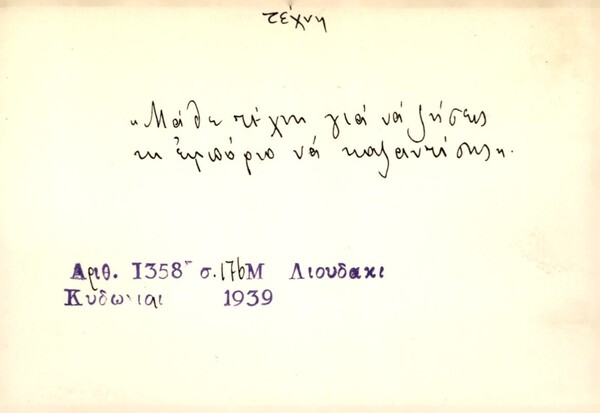 τέχνη
"Μάθε τέχνη γιά νά ζήσεις
κι ἐμπόριο νά καζαντίσης".
Αριθ. 1358 σ. 176 Μ Λιουδακι
Κυδωνιαι 1939